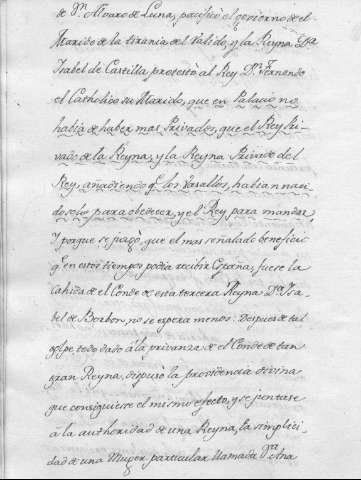 de Dn. Alvaro de Luna, pacificò el govierno de el
Marido de la tirania del Valido, y la Reyna Dª
Isabel de Castilla, protestò al Rey Dn. Fernando
el Catholico su Marido, que en Palacio no
havia de haber mas Privados, que el Rey Pri-
vado de la Reyna, y la Reyna Privada del
Rey, añadiendo q. los Vasallos, havian naci-
do solo para obedecer, y el Rey para mandar
Y porque se juzgò, que el mas señalado beneficio
q. en estos tiempos podia recibir España, fuese la
cahida de el Conde de esta tercera Reyna Dª Isa-
bel de Borbon, no se espera menos: Despues de tal
golpe todo dado à la privanza de el Conde de tan
gran Reyna, dispusò la providencia divina
que consiguiese el mismo efecto, y se juntase
à la authoridad de una Reyna, la simplici-
dad de una Muger particular llamada Dª Ana